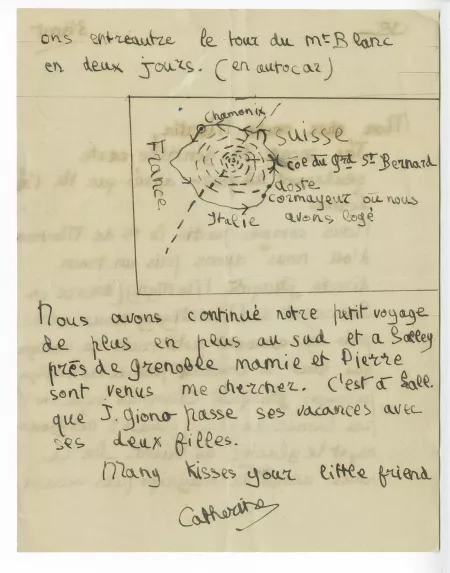 ons entreautre le tour du mt Blanc
en deux jours. (en autocar)
Chamonix
Suisse
France
col du grd St Bernard
aoste
cormayeur où nous
avons logé
Italie
Nous avons continué notre petit voyage
de plus en plus au sud et a Salley
près de grenoble mamie et Pierre
sont venus me chercher. C'est à Sall.
que J. Giono passe ses vacances avec
ses deux filles.
Many kisses your little friend
Catherine